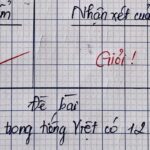 Nhận xét củ
Giỏi !
Đề bài
trong tiếng Việt có 12